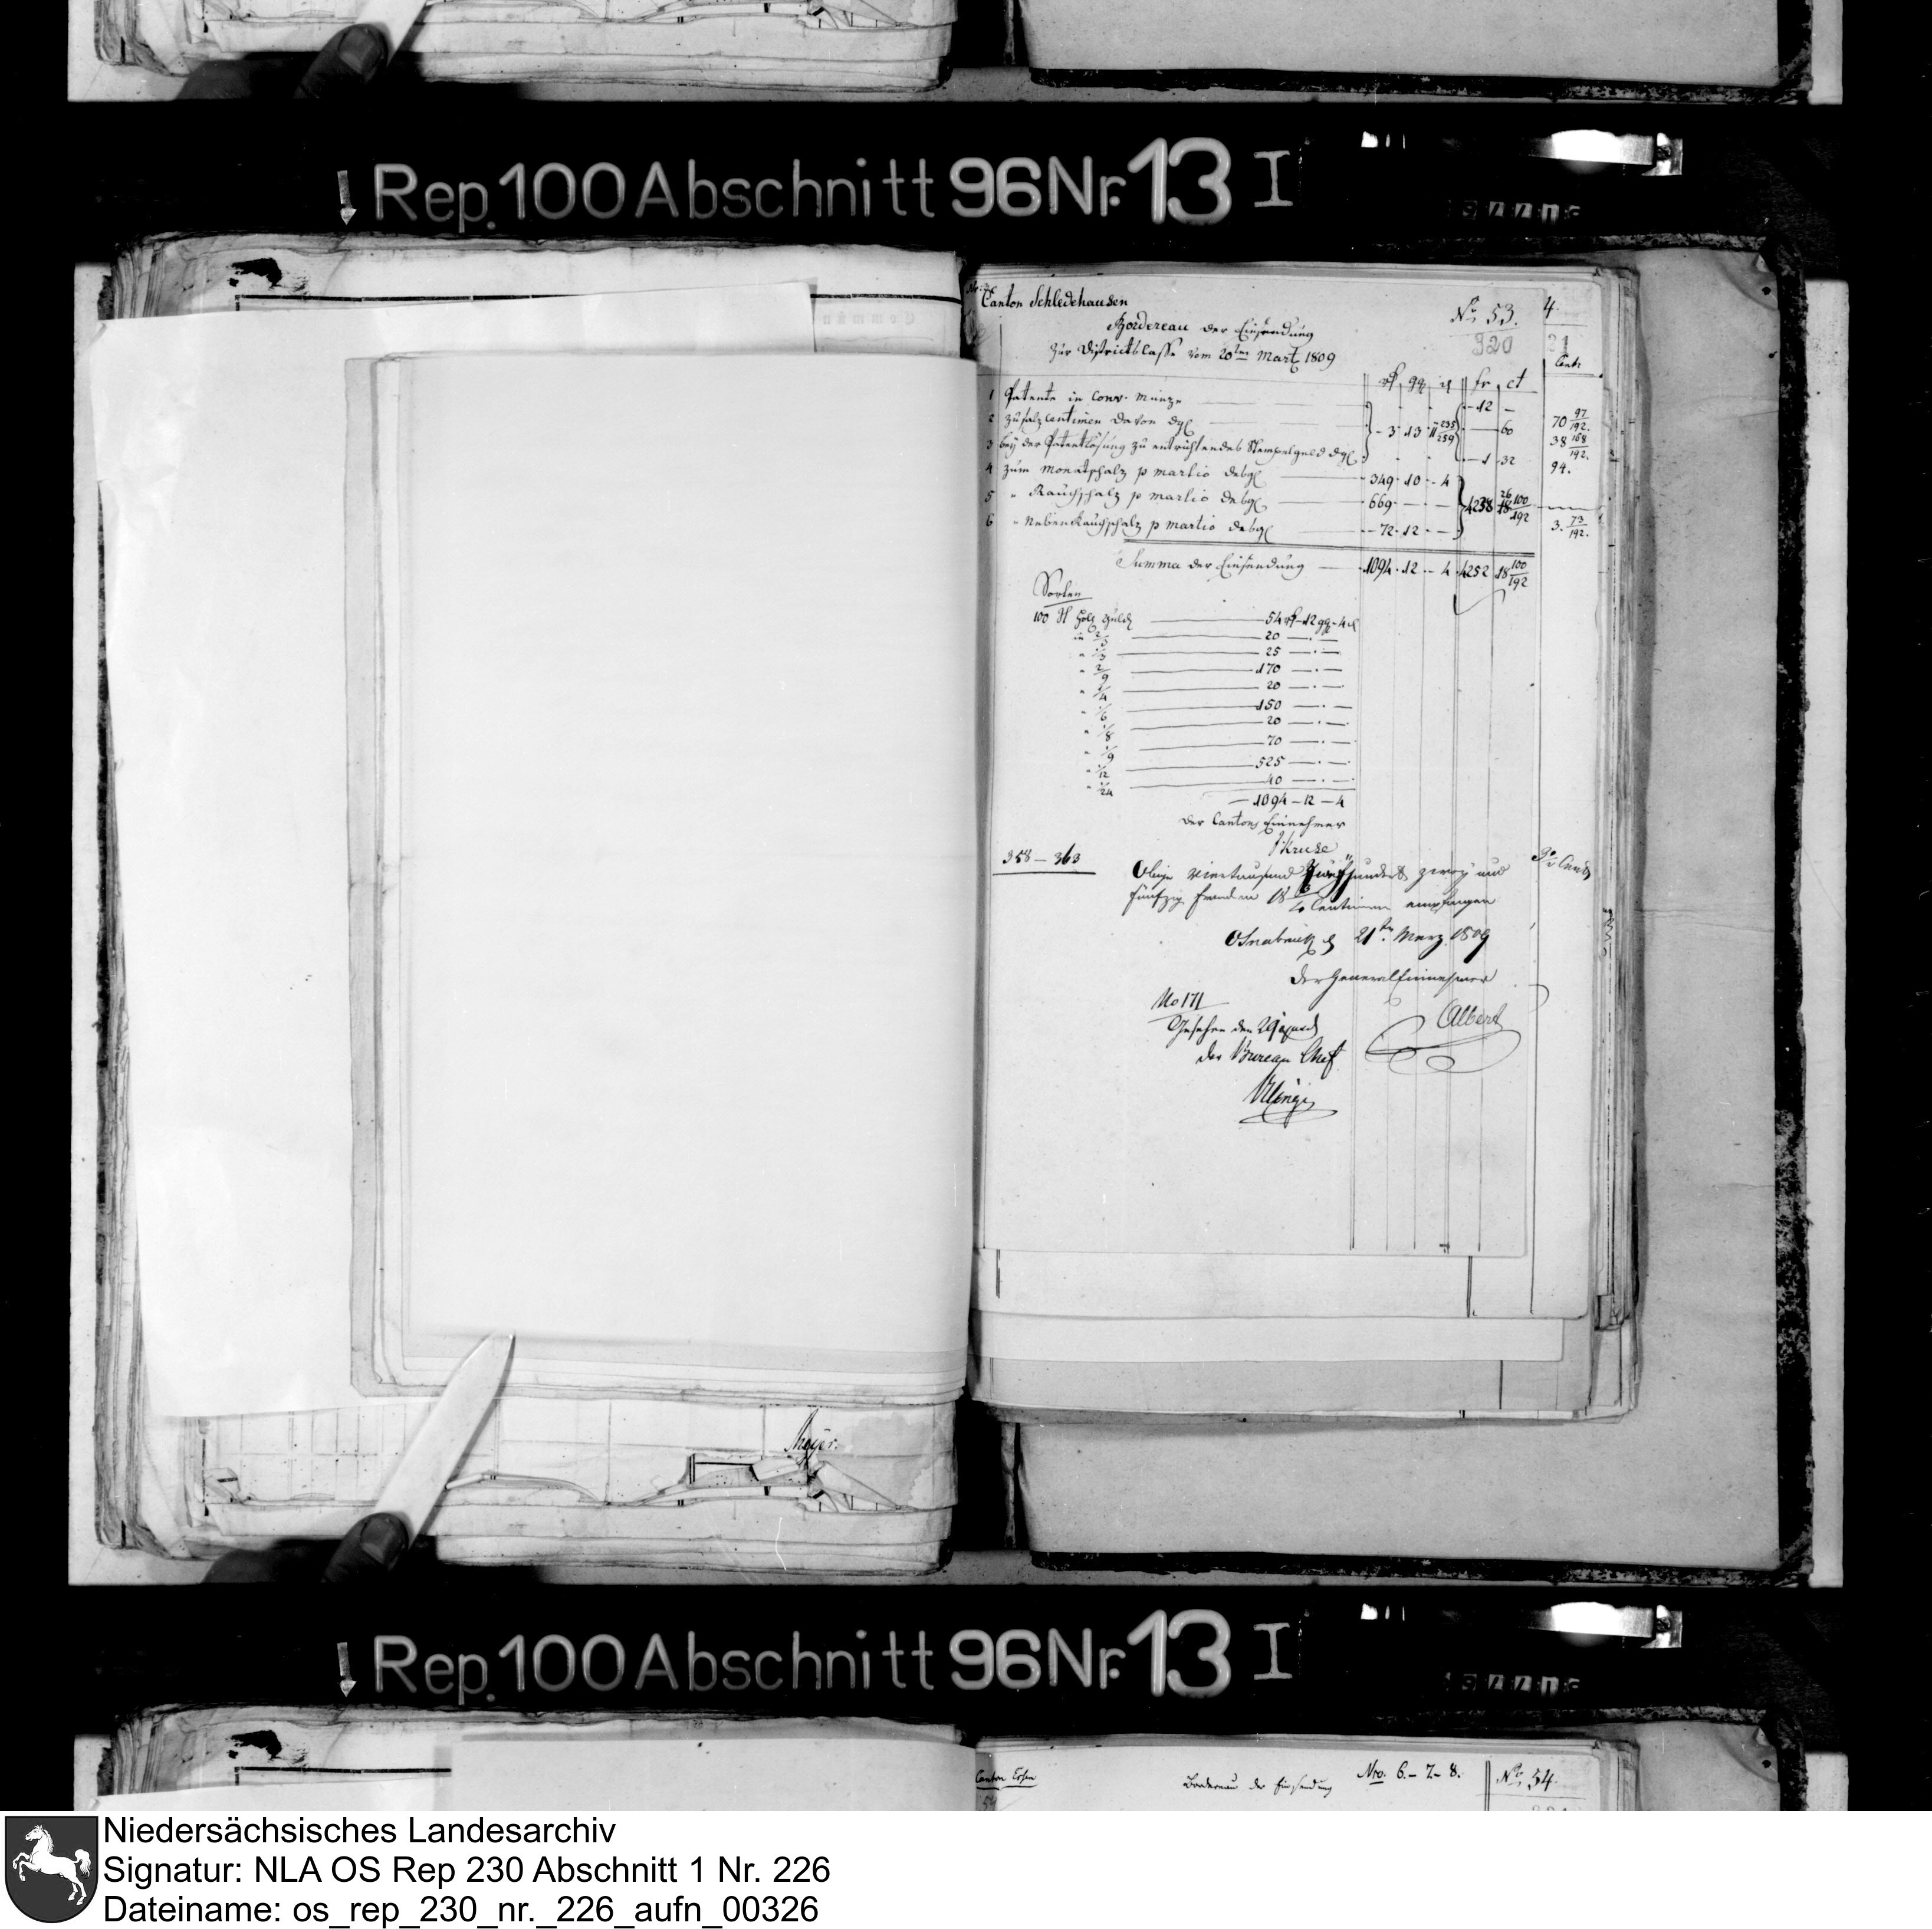 Rep. 100 Abschnitt 96 Nr. 13 I
Canton Schledehausen
No. 53.
4.
Bordereau der Einsendung
320
21
zur Districtscasse vom 20ten Martz 1809
Cent.
rh gg d fr ct
1 Patente in Conv. Münze 12 —
2 Zusatzcentimen davon dgl 3 13 11 235/259 — 60 70 97/192.
3 bey der Patentlösung zu entrichtendes Stempelgeld dgl 1 32 38 168/192.
4 zum Monatschatz p martio desgl 349 10 4 94.
5 " Rauchschatz p martio desgl 669 — — 4238 26 100/192
6 " Nebenrauchschatz p martio desgl 72 12 — 3. 73/192.
Summa der Einsendung 1094 12 4 4252 18 100/192
Sorten
100 Holl 54 rh 12 gg 4 d
in 2/3 20
" 1/3 25
" 2/9 170
" 1/4 20
" 1/6 150
" 1/8 20
" 1/9 70
" 1/12 525
" 1/24 40
1094 — 12 — 4
Der Cantons Einnehmer
Kruse
358 — 363
Obige viertausend zweyhundert zwey und
fünfzig Franken 18 Centimen empfangen
Osnabrück d 21ten Merz 1809
Der General Einnehmer
Albert
No 171
Gesehen den
der Bureau Chef
Meyer.
Rep. 100 Abschnitt 96 Nr. 13 I
Canton Essen
Bordereau der Einsendung
Nro. 6. - 7. - 8.
No. 54.
Niedersächsisches Landesarchiv
Signatur: NLA OS Rep 230 Abschnitt 1 Nr. 226
Dateiname: os_rep_230_nr._226_aufn_00326